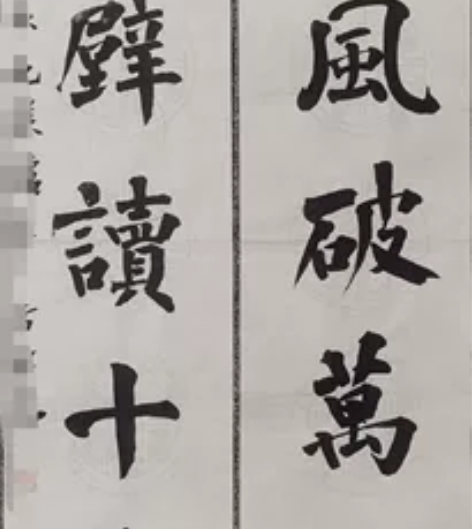 風破萬
壁讀十